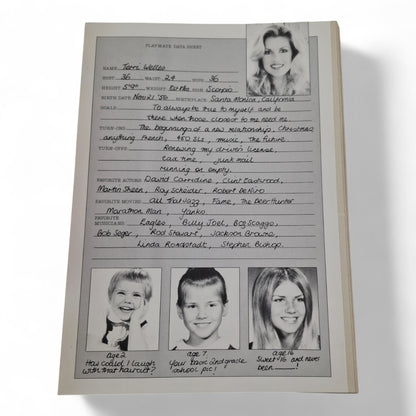 PLAYMATE DATA SHEET
NAME: Terri Welles
BUST: 36 WAIST: 24 HIPS: 36
HEIGHT: 5'9" WEIGHT: SIGN: Scorpio
BIRTH DATE: Nov 21 '56 BIRTHPLACE: Santa Monica, California
GOALS: To always be true to myself and be
there when those closest to me need me.
TURN-ONS: The beginnings of a new relationship, Christmas,
anything French, 450 SLs, music, The Future.
TURN-OFFS: Renewing my driver's license,
bad time, junk mail
running on empty.
FAVORITE ACTORS: David Carradine, Clint Eastwood,
Martin Sheen, Roy Scheider, Robert De Niro
FAVORITE MOVIES: All that Jazz, Fame, The Deer Hunter
Marathon Man, Yanks
FAVORITE
MUSICIANS: Eagles, Billy Joel, Boz Scaggs,
Bob Seger, Rod Stewart, Jackson Browne,
Linda Ronstadt, Stephen Bishop.
age 2
How could I laugh
with that haircut?
age 7
Your basic 2nd grade
school pic!
age 16
Sweet 16 and never
been ____!